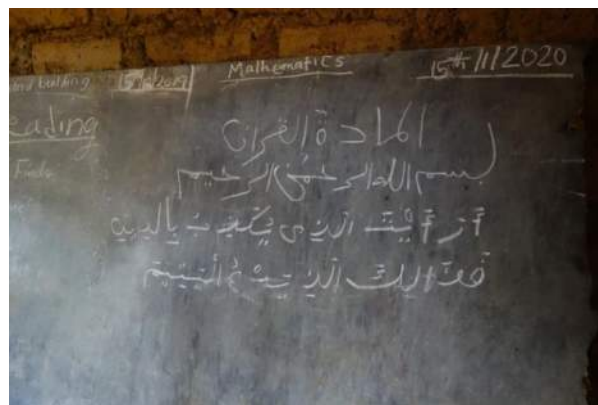 Mathematics
15th/1/2020
building
15/12/2019
eading
Finds
المادة القرآن
بسم الله الرحمٰن الرحيم
أرأيت الذي يكذب بالدين
فذالك الذي يدع اليتيم